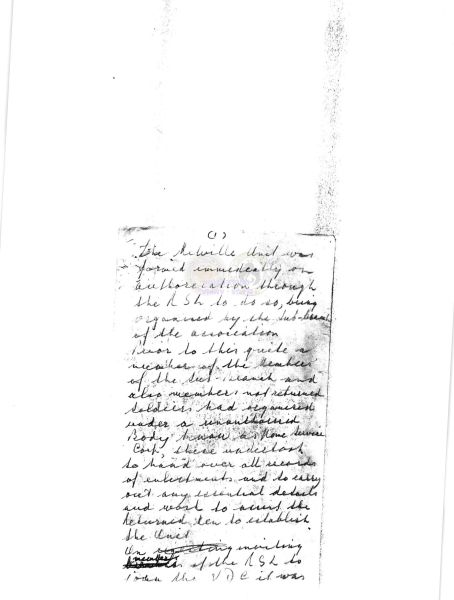 (1)
The Melville Unit was
formed immedeatly on
authoreisation through
the R S L to do so, being
organised by the Sub-Branch
of the association
Prior to this quite a
number of the Members
of the Sub-Branch and
also members not returned
soldiers had organised
under a unauthorised
Body known as Home Service
Corp, these undertook
to hand over all records
of enlistments and to carry
out any essential details
and work to assist the
Returned Men to establish
the Unit
On inviting
members of the R S L to
join the V D C it was